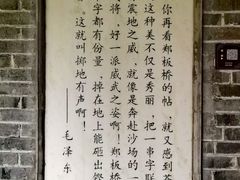 你再看郑板桥的帖,就又感到苍
这种美不仅是秀丽,把一串字联
震地之威,就像是奔赴沙场的一
将,好一派威武之姿啊!郑板桥
字都有份量,掉在地上能砸出铿
,这就叫掷地有声啊!
——毛泽东